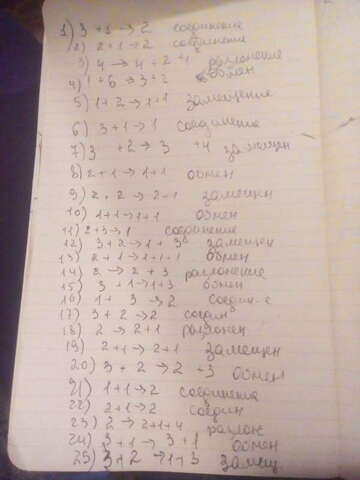 1) 3 + 1 → 2 соединение
2) 2 + 1 → 2 соединение
3) 4 → 4 + 2 + 1 разложение
4) 1 + 6 → 3 + 2 обмен
5) 1 + 2 → 1 + 1 замещение
6) 3 + 1 → 1 соединение
7) 3 + 2 → 3 + 4 замещен
8) 2 + 1 → 1 + 1 обмен
9) 2 + 2 → 2 + 1 замещен
10) 1 + 1 → 1 + 1 обмен
11) 2 + 3 → 1 соединение
12) 3 + 2 → 1 + 3 замещен
13) 2 + 1 → 1 + 1 + 1 обмен
14) 2 → 2 + 3 разложение
15) 3 + 1 → 1 + 3 обмен
16) 1 + 3 → 2 соедин-е
17) 3 + 2 → 2 соедин
18) 2 → 2 + 1 разложен
19) 2 + 1 → 2 + 1 замещен
20) 3 + 2 → 2 + 3 обмен
21) 1 + 1 → 2 соединение
22) 2 + 1 → 2 соедин
23) 2 → 2 + 1 + 4 разлож
24) 3 + 1 → 3 + 1 обмен
25) 3 + 2 → 1 + 3 замещ